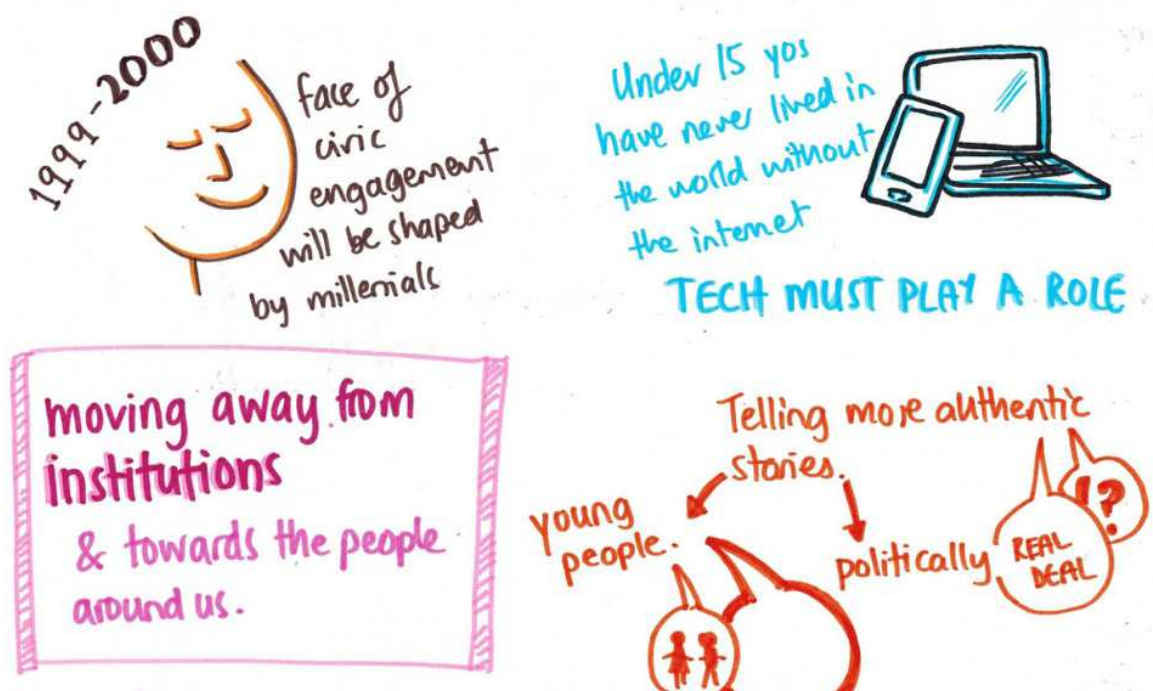 1999-2000
face of
civic
engagement
will be shaped
by millenials
Under 15 yos
have never lived in
the world without
the internet
TECH MUST PLAY A ROLE
moving away from
institutions
& towards the people
around us.
Telling more authentic
stories.
young
people.
politically
REAL
DEAL
!?